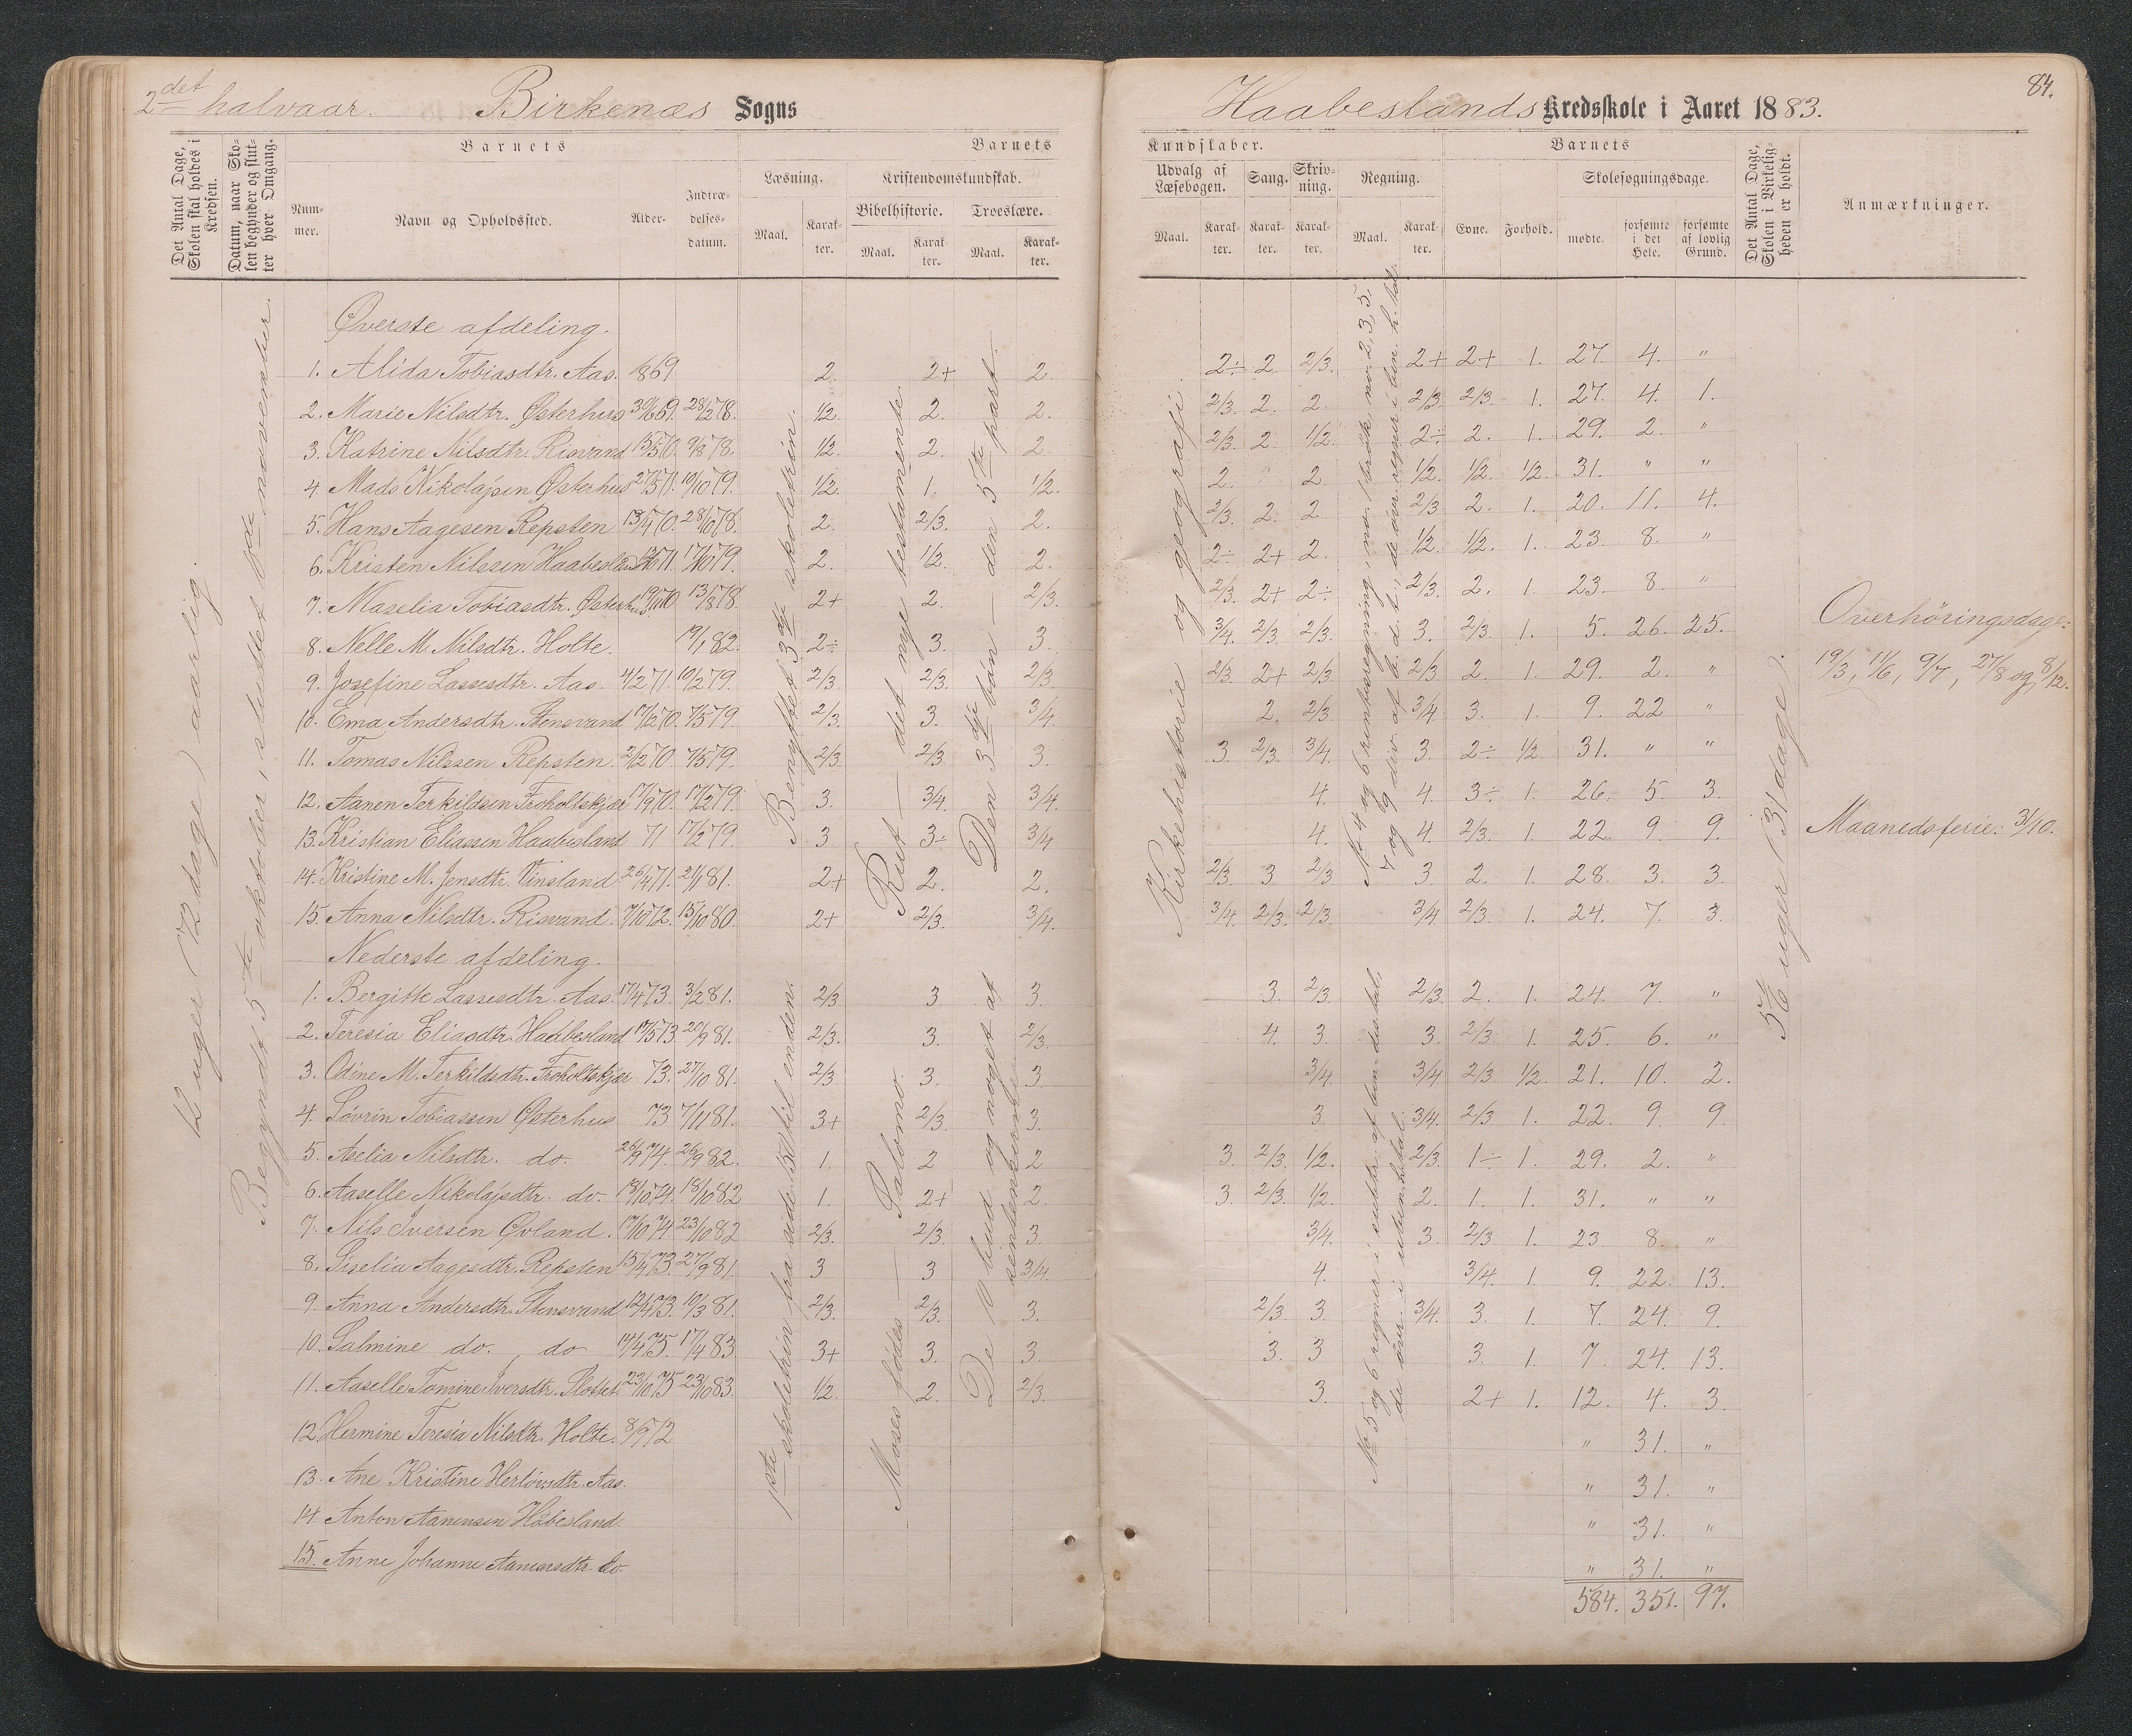 2det halvaar. Birkenæs Sogns
Det Antal Dage, Skolen skal holdes i Kredsen.
Datum, naar Skolen begynder og slutter hver Omgang.
Barnets
Barnets
Nummer.
Navn og Opholdssted.
Alder.
Indtrædelsesdatum.
Læsning.
Kristendomskundskab.
Bibelhistorie.
Troeslære.
Maal. Karakter. Maal. Karakter. Maal. Karakter.
12 uger (72 dage) aarlig.
Begyndt 5te oktober, sluttet
november.
Benyttet 3die skoletrin.
Rut — det nye testamente.
Den 3die bøn — den 5te part.
Øverste afdeling.
1. Alida Tobiasdtr. Aas. 1869 2. 2+ 2.
2. Marie Nilsdtr. Østerhus 30/6 69. 28/2 78. 1/2. 2. 2.
3. Katrine Nilsdtr. Risvand 15/5 70. 9/8 78. 1/2. 2. 2.
4. Mads Nikolajsen Østerhus 27/5 71. 10/10 79. 1/2. 1. 1/2.
5. Hans Aagesen Repsten 13/4 70. 28/10 78. 2. 2/3. 2.
6. Kristen Nilssen Haabesland 71. 17/10 79. 2. 1/2. 2.
7. Maselia Tobiasdtr. Østerhus 70 13/8 78. 2+ 2. 2/3.
8. Nelle M. Nilsdtr. Holte. 19/1 82. 2÷ 3. 3.
9. Josefine Lassesdtr. Aas. 4/2 71. 10/2 79. 2/3. 2/3. 2/3.
10. Ema Andersdtr. Stensvand 17/2 70. 7/5 79. 2/3. 3. 3/4.
11. Tomas Nilssen Repsten. 2/2 70 7/5 79. 2/3. 2/3 3.
12. Aanen Terkildsen Froholtskjær 17/9 70. 17/2 79. 3. 3/4. 3/4.
13. Kristian Eliassen Haabesland 71 17/2 79. 3 3÷ 3/4
14. Kristine M. Jensdtr. Vinsland 26/4 71. 21/1 81. 2+ 2. 2.
15. Anna Nilsdtr. Risvand. 7/10 72. 15/10 80. 2+ 2/3. 3/4.
Nederste afdeling.
1ste skoletrin fra side 51 til enden.
Moses fødes — Salomo.
De 10 bud og noget af
sentenkerne
1. Bergitte Lassesdtr. Aas. 17/4 73. 3/2 81. 2/3. 3. 3.
2. Teresia Eliasdtr. Haabesland 17/5 73 20/9 81. 2/3. 3. 2/3.
3. Odine M. Terkildsdtr. Froholtskjær 73. 27/10 81. 2/3. 3. 3.
4. Sovrin Tobiassen Østerhus 73 7/11 81. 3+ 2/3. 3.
5. Aselia Nilsdtr. do. 26/9 74. 26/9 82. 1. 2 2
6. Aaselle Nikolajsdtr. do. 18/10 74. 18/10 82 1. 2+ 2.
7. Nils Iversen Øvland. 17/10 74 23/10 82 2/3. 2/3. 3
8. Siselia Aagesdtr. Repsten 15/4 73. 27/9 81. 3 3 3/4.
9. Anna Andersdtr. Stensvand 12/4 73. 10/3 81. 2/3. 2/3. 3.
10. Salmine do. do 14/4 75. 17/4 83 3+ 3. 3.
11. Aaselle Tomine Iversdtr. Slottet. 23/10 75 23/10 83. 1/2. 2. 2/3.
12. Hermine Teresia Nilsdtr. Holte. 8/9 72
13. Ane Kristine Herlovsdtr. Aas.
14. Anton Aanensen Håbesland.
15. Anne Johanne Aanensdtr. do.
84.
Haabeslands Kredsskole i Aaret 1883.
Kundskaber.
Barnets
Udvalg af Læsebogen.
Sang.
Skrivning.
Regning.
Evne. Forhold.
Skolesøgningsdage.
Maal. Karakter. Karakter. Karakter. Maal. Karakter.
mødte. forsømte i det Hele. forsømte af lovlig Grund.
Det Antal Dage, Skolen i Virkeligheden er holdt.
Anmærkninger.
Kirkehistorie og geografi.
No. 4 og 6 rentesregning, no. 1 brøk, no. 2, 3, 5,
7 og 9 div. af b. d. t., de øvr. regner i ben. h. tal.
5 1/6 uger (31 dage).
2÷ 2 2/3. 2+ 2+ 1. 27. 4. "
2/3. 2. 2. 2/3. 2/3. 1. 27. 4. 1.
2/3. 2. 1/2. 2÷ 2. 1. 29. 2. "
2. 2. 1/2. 1/2. 1/2. 31. " "
2/3. 2. 2 2/3 2. 1. 20. 11. 4.
2÷ 2+ 2. 1/2. 1/2. 1. 23. 8. "
2/3. 2+ 2÷ 2/3. 2. 1. 23. 8. "
3/4. 2/3. 2/3. 3. 2/3. 1. 5. 26. 25.
2/3. 2+ 2/3 2/3 2. 1. 29. 2. "
2. 2/3 3/4 3. 1. 9. 22 "
3 2/3. 3/4. 3. 2÷ 1/2 31. " "
4. 4. 3÷ 1. 26. 5. 3.
4. 4. 2/3. 1. 22. 9. 9.
2/3. 3 2/3 3. 2. 1. 28. 3. 3.
3/4. 2/3. 2/3. 3/4 2/3. 1. 24. 7. 3.
Overhöringsdage:
19/3, 11/6, 9/7, 27/8 og 8/12.
Maanedsferie: 3/10.
3. 2/3. 2/3. 2. 1. 24. 7. "
4. 3. 3. 2/3 1. 25. 6. "
3/4. 3/4 2/3 1/2. 21. 10. 2.
3. 3/4. 2/3 1. 22. 9. 9.
3. 2/3. 1/2. 2/3. 1÷ 1. 29. 2. "
3. 2/3. 1/2. 2. 1. 1. 31. " "
3/4. 3. 2/3 1. 23. 8. "
4. 3/4. 1. 9. 22. 13.
2/3 3. 3/4. 3. 1. 7. 24. 9.
3. 3 3. 1. 7. 24. 13.
3. 2+ 1. 12. 4. 3.
" 31. "
" 31. "
" 31. "
" 31. "
584. 351. 97.
No 5 og 6 regner i subtr. af
de øvr. i